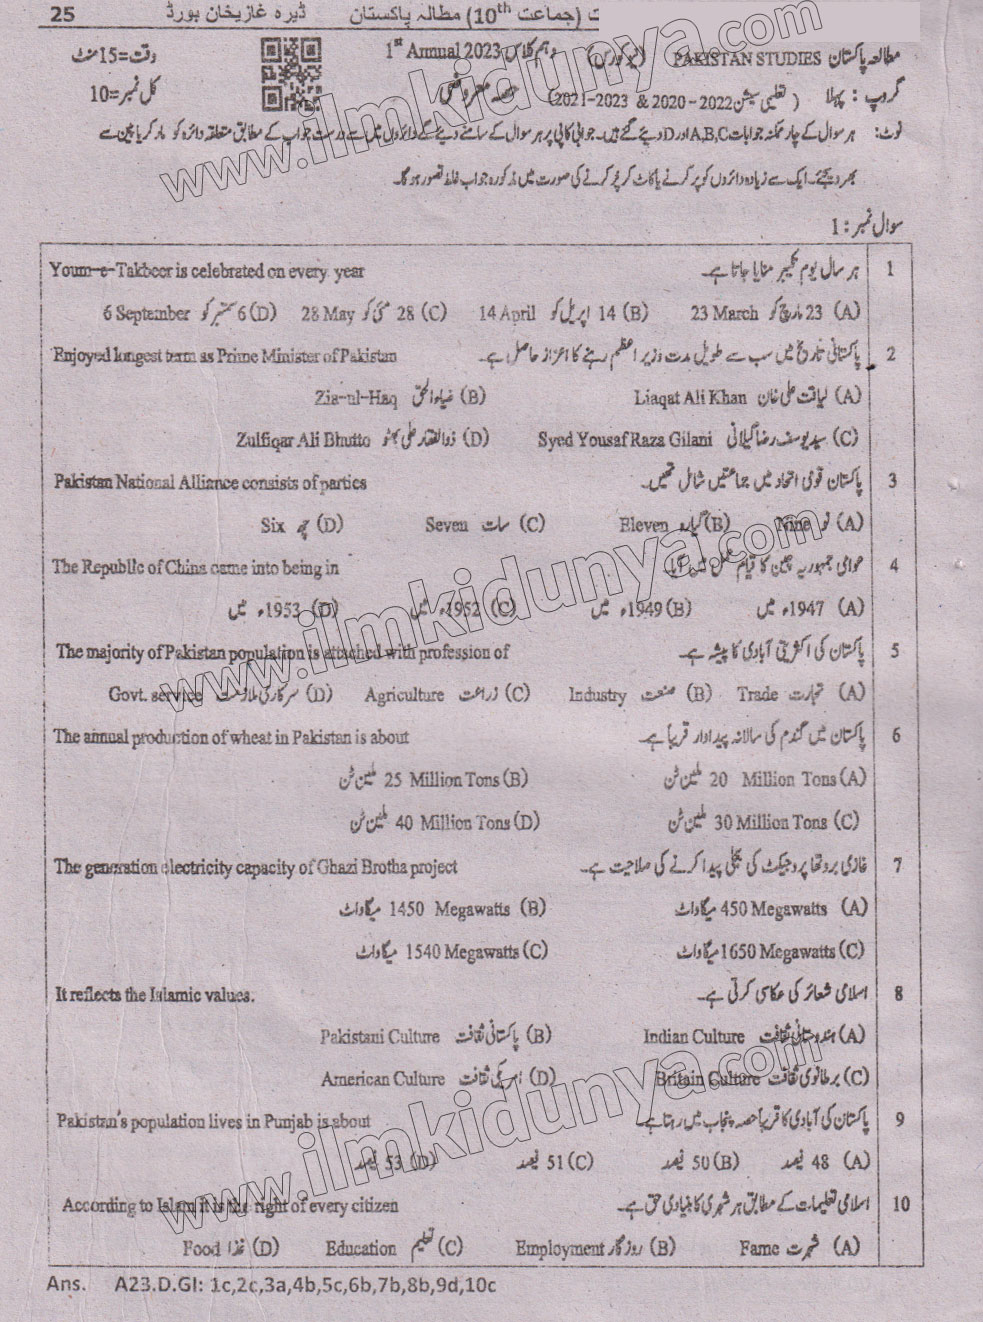 ت (جماعت 10th) مطالہ پاکستان ڈیرہ غازیخان بورڈ 25
مطالعہ پاکستان PAKISTAN STUDIES (نیو کورس) دہم کلاس 1st Annual 2023 وقت=15منٹ
گروپ : پہلا (تعلیمی سیشن 2020-2022 & 2021-2023) حصہ معروضی کل نمبر=10
نوٹ: ہر سوال کے چار ممکنہ جوابات A,B,C اور D دیئے گئے ہیں۔ جوابی کاپی پر ہر سوال کے سامنے دیئے گئے دائروں میں سے درست جواب کے مطابق متعلقہ دائرہ کو مارکر یا پین سے
بھر دیجئے۔ ایک سے زیادہ دائروں کو پر کرنے یا کاٹ کر پُر کرنے کی صورت میں مذکورہ جواب غلط تصور ہو گا۔
سوال نمبر : 1
1 ہر سال یوم تکبیر منایا جاتا ہے۔ Youm-e-Takbeer is celebrated on every year
(A) 23 مارچ کو 23 March (B) 14 اپریل کو 14 April (C) 28 مئی کو 28 May (D) 6 ستمبر کو 6 September
2 پاکستانی تاریخ میں سب سے طویل مدت وزیر اعظم رہنے کا اعزاز حاصل ہے۔ Enjoyed longest term as Prime Minister of Pakistan
(A) لیاقت علی خان Liaqat Ali Khan (B) ضیاءالحق Zia-ul-Haq
(C) سید یوسف رضا گیلانی Syed Yousaf Raza Gilani (D) ذوالفقار علی بھٹو Zulfiqar Ali Bhutto
3 پاکستان قومی اتحاد میں جماعتیں شامل تھیں۔ Pakistan National Alliance consists of parties
(A) نو Nine (B) گیارہ Eleven (C) سات Seven (D) چھ Six
4 عوامی جمہوریہ چین کا قیام عمل میں آیا۔ The Republic of China came into being in
(A) 1947ء میں (B) 1949ء میں (C) 1952ء میں (D) 1953ء میں
5 پاکستان کی اکثریتی آبادی کا پیشہ ہے۔ The majority of Pakistan population is attached with profession of
(A) تجارت Trade (B) صنعت Industry (C) زراعت Agriculture (D) سرکاری ملازمت Govt. service
6 پاکستان میں گندم کی سالانہ پیداوار قریباً ہے۔ The annual production of wheat in Pakistan is about
(A) 20 Million Tons ملین ٹن (B) 25 Million Tons ملین ٹن
(C) 30 Million Tons ملین ٹن (D) 40 Million Tons ملین ٹن
7 غازی بروتھا پروجیکٹ کی بجلی پیدا کرنے کی صلاحیت ہے۔ The generation electricity capacity of Ghazi Brotha project
(A) 450 Megawatts میگاواٹ (B) 1450 Megawatts میگاواٹ
(C) 1650 Megawatts میگاواٹ (C) 1540 Megawatts میگاواٹ
8 اسلامی شعائر کی عکاسی کرتی ہے۔ It reflects the Islamic values.
(A) ہندوستانی ثقافت Indian Culture (B) پاکستانی ثقافت Pakistani Culture
(C) برطانوی ثقافت Britain Culture (D) امریکی ثقافت American Culture
9 پاکستان کی آبادی کا قریباً حصہ پنجاب میں رہتا ہے۔ Pakistan's population lives in Punjab is about
(A) 48 فیصد (B) 50 فیصد (C) 51 فیصد (D) 53 فیصد
10 اسلامی تعلیمات کے مطابق ہر شہری کا بنیادی حق ہے۔ According to Islam it is the right of every citizen
(A) شہرت Fame (B) روزگار Employment (C) تعلیم Education (D) غذا Food
Ans. A23.D.GI: 1c,2c,3a,4b,5c,6b,7b,8b,9d,10c
www.ilmkidunya.com
www.ilmkidunya.com
www.ilmkidunya.com